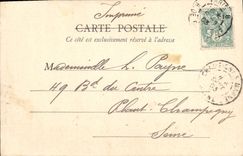 Imprimé
CARTE POSTALE
Ce côté est exclusivement réservé à l'adresse
Mademoiselle L. Payne
49 Bd du Centre
Plant-Champigny
Seine